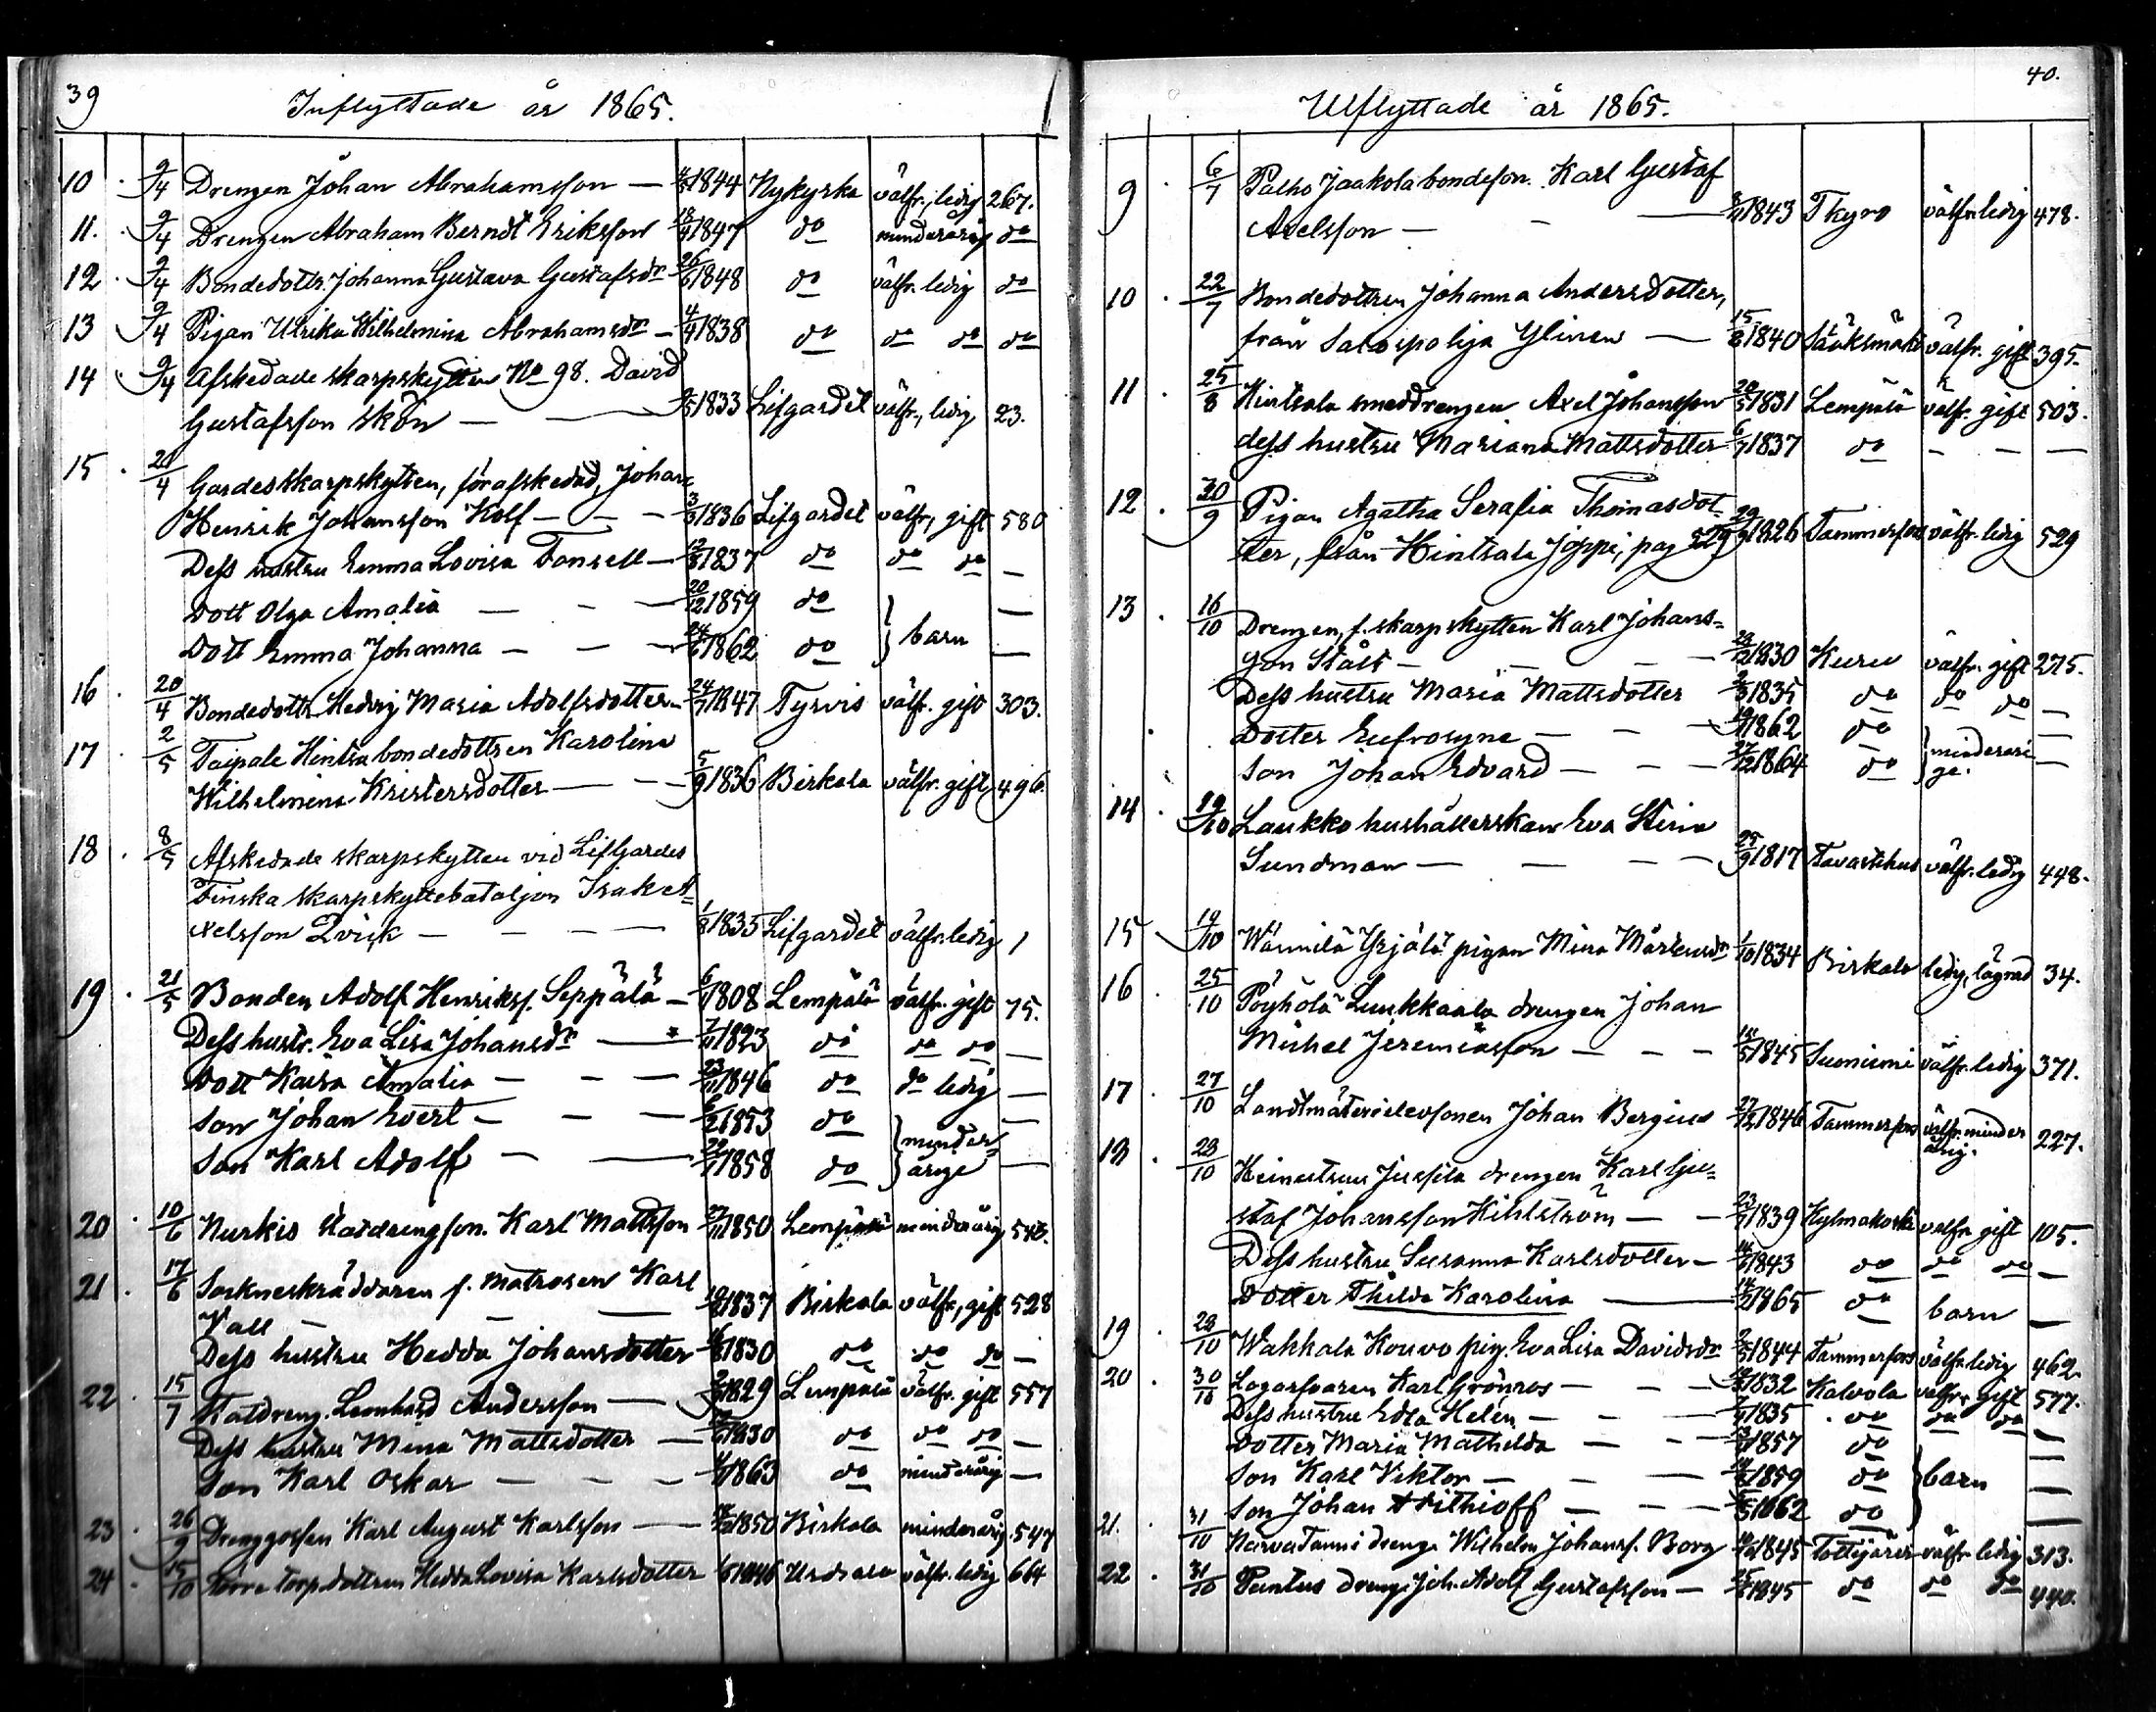 39
Inflyttade år 1865.
10 . 9/4 Drengen Johan Abrahamsson — 1844 Nykyrka välfr., ledig 267.
11. 9/4 Drengen Abraham Berndt Eriksson 18/9 1847 do minderårig do
12 . 9/4 Bondedottr. Johanna Gustava Gustafsdr 26/6 1848 do välfr. ledig do
13 9/4 Pigan Ulrika Wilhelmina Abrahamsdr — 4/4 1838 do do do do
14 . 9/4 Afskedade skarpskytten No 98. David
Gustafsson Skön — — 1833 Lifgardet välfr., ledig 23.
15 . 20/4 Gardesskarpskytten, förafskedad, Johan
Henrik Johansson Kolf — — — 3/3 1836 Lifgardet välfr, gift 580
Dess hustru Emma Lovisa Tonsell — 12/8 1837 do do do —
Dott Olga Amalia — — — 20/12 1859 do —
Dott Emma Johanna — — — 24/6 1862 do } barn —
16 . 20/4 Bondedottr Hedvig Maria Adolfsdotter — 24/7 1847 Tyrvis välfr. gift 303.
17 2/5 Taipale Hintsa bondedottren Karolina
Wilhelmina Kristersdotter — — 5/9 1836 Birkala välfr. gift 496.
18 . 8/5 Afskedade skarpskytten vid Lifgardes
Finska skarpskyttebataljon Isak A=
xelsson Qvick — — — — 1/8 1835 Lifgardet välfr. ledig 1
19 . 21/5 Bonden Adolf Henrikss. Seppälä — 6/1 1808 Lempälä välfr. gift 75.
Dess hustr. Eva Lisa Johansdr — 1823 do do do —
Dott Kaisa Amalia — — — 23/11 1846 do do ledig —
Son Johan Evert — — — 1853 do —
Son Karl Adolf — — 1858 do } minder årige —
20 . 10/6 Nurkis statdrengson. Karl Mattsson 27/11 1850 Lempälä minderårig 543.
21 . 17/6 Sockneskräddaren f. Matrosen Karl
Vall — — — 1837 Birkala välfr, gift 528
Dess hustru Hedda Johansdotter 1830 do do do —
22 . 15/7 Statdreng. Leonhard Andersson — 1829 Lempälä välfr. gift 557
Dess hustru Mina Mattsdotter — 1830 do do do —
Son Karl Oskar — — — 1863 do minderårig —
23 . 26/9 Drenggossen Karl August Karlsson — 1850 Birkala minderårig 547
24 . 15/10 torp. dottren Hedda Lovisa Karlsdotter 1846 välfr. ledig 664
40.
Utflyttade år 1865.
9 . 6/7 Palho Jaakola bondeson. Karl Gustaf
Axelsson — — — 1843 Thyro välfr. ledig 478.
10 . 22/7 Bondedottren Johanna Andersdotter,
från Sarospohja Ylinen — 15/8 1840 Sääksmäki välfr. gift 395.
11 . 25/8 Hintsala smeddrengen Axel Johansson 20/5 1831 Lempälä välfr. gift 503.
dess hustru Mariana Mattsdotter 6/7 1837 do — — —
12 . 30/9 Pigan Agatha Serafia Thomasdot
ter, från Hintsala Joppi, pag 529 1826 Tammerfors välfr. ledig 529
13 . 16/10 Drengen, f. skarpskytten Karl Johans=
son Stålt — — — 1830 Kuru välfr. gift 275.
Dess hustru Maria Mattsdotter 1835 do do do —
Dotter Eufrosyne — — 1862 do —
Son Johan Edvard — — — 27/12 1864 do } minderåri ge. —
14 . 19/10 Laukko hushållerskan Eva Stina
Sundman — — — 25/9 1817 Tavastehus välfr. ledig 448.
15 19/10 Wännilä Yrjälä pigan Mina Mårtensdr 1/10 1834 Birkala ledig, lägrad 34.
16 . 25/10 Pöyhölä Luukkaala drengen Johan
Michel Jeremiasson — — — 1845 Suoniemi välfr. ledig 371.
17 . 27/10 Landtmäterielevsonen Johan Bergius 27/12 1846 Tammerfors välfr. minder årig. 227.
18 . 28/10 Heinastuen Jussila drengen Karl Gu=
staf Johansson Kihlström — — 1839 Kylmäkoski välfr. gift 105.
Dess hustru Susanna Karlsdotter — 1843 do do do —
Dotter Thilda Karolina — 1865 do barn —
19 . 28/10 Wakkala Kouvo pig. Eva Lisa Davidsdr 1844 Tammerfors välfr. ledig 462
20 . 30/10 Lagarfvaren Karl Grönros — — 1832 Kalvola välfr. gift 577.
Dess hustru Edla Helén — — 1835 . do do do
Dotter Maria Mathilda — — 1857 do —
Son Karl Viktor — — — 1859 do } barn —
Son Johan Frithioff — — 1862 do —
21. 31/10 Narva Tanni dreng. Wilhelm Johanss. Borg 1845 Tottijärvi välfr. ledig 313.
22 . 31/10 Puntus dreng. Joh. Adolf Gustafsson — 1845 do do do 440.